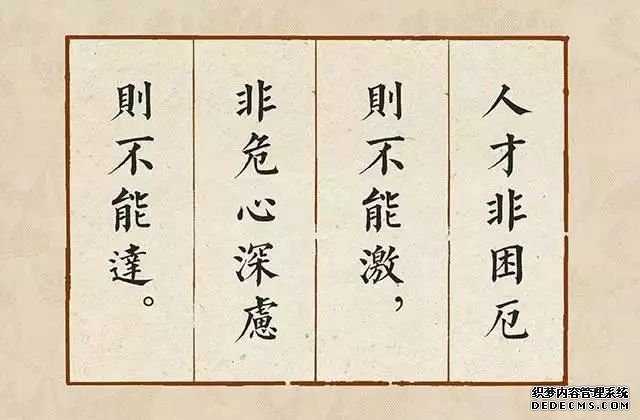 人才非困厄
則不能激，
非危心深慮
則不能達。
织梦内容管理系统
DEDECMS.COM